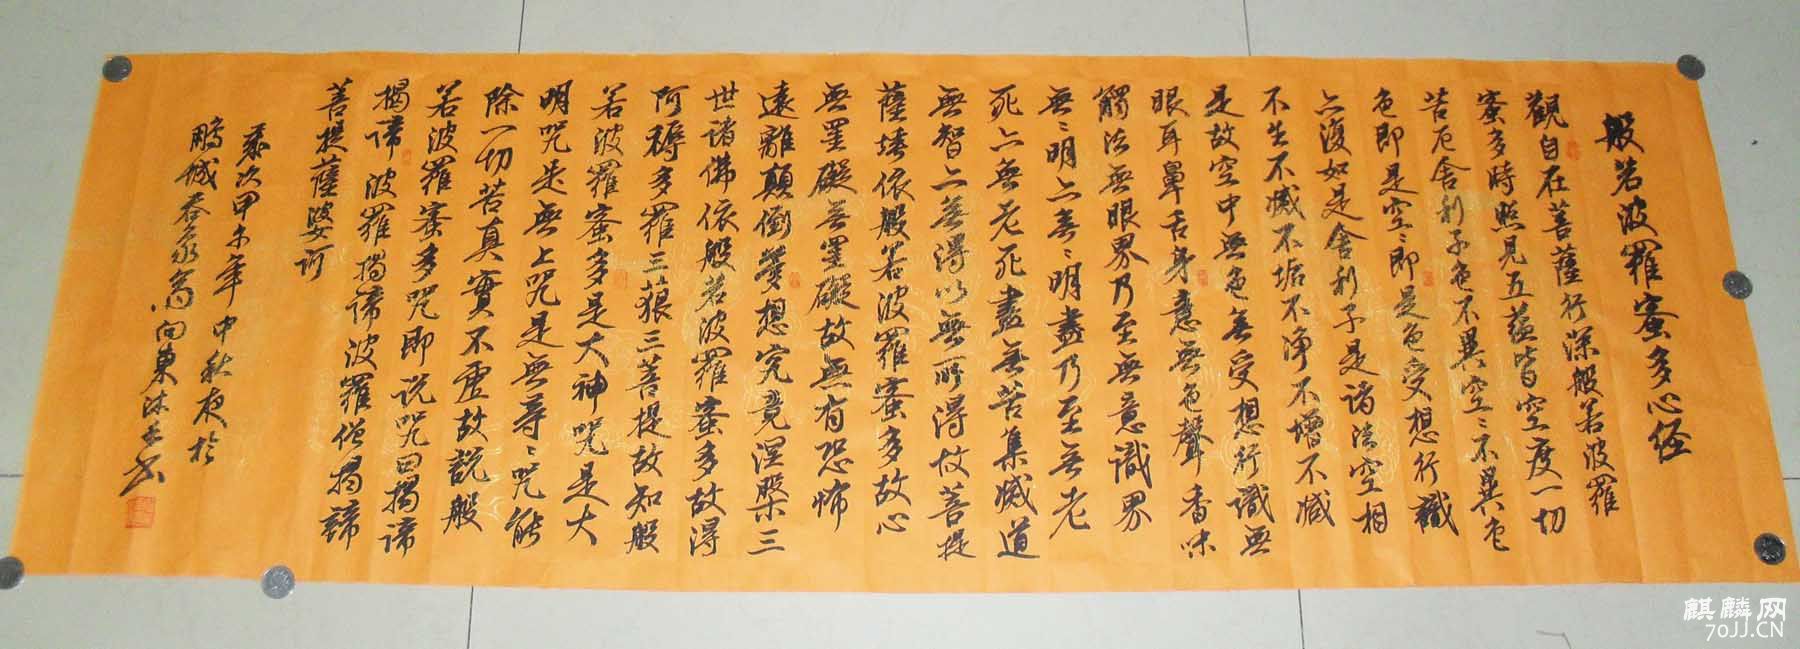 般若波羅蜜多心经
觀自在菩薩行深般若波羅
蜜多時照見五蘊皆空度一切
苦厄舍利子色不異空〻不異色
色即是空〻即是色受想行識
亦復如是舍利子是諸法空相
不生不滅不垢不净不增不減
是故空中無色無受想行識無
眼耳鼻舌身意無色聲香味
觸法無眼界乃至無意識界
無〻明亦無〻明盡乃至無老
死亦無老死盡無苦集滅道
無智亦無得以無所得故菩提
薩埵依般若波羅蜜多故心
無罣礙無罣礙故無有恐怖
遠離顛倒夢想究竟涅槃三
世諸佛依般若波羅蜜多故得
阿耨多羅三藐三菩提故知般
若波羅蜜多是大神咒是大
明咒是無上咒是無等〻咒能
除一切苦真實不虛故說般
若波羅蜜多咒即说咒曰揭諦
揭諦波羅揭諦波羅僧揭諦
菩提薩婆訶
歲次甲午年中秋夜於
鵬城向東沐手书
麒麟网
70JJ.CN